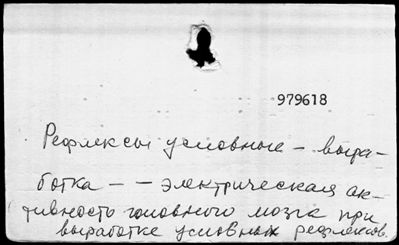 979618
Рефлексы условные – выра-
ботка – – электрическая ак-
тивность головного мозга при
выработке условных рефлексов.